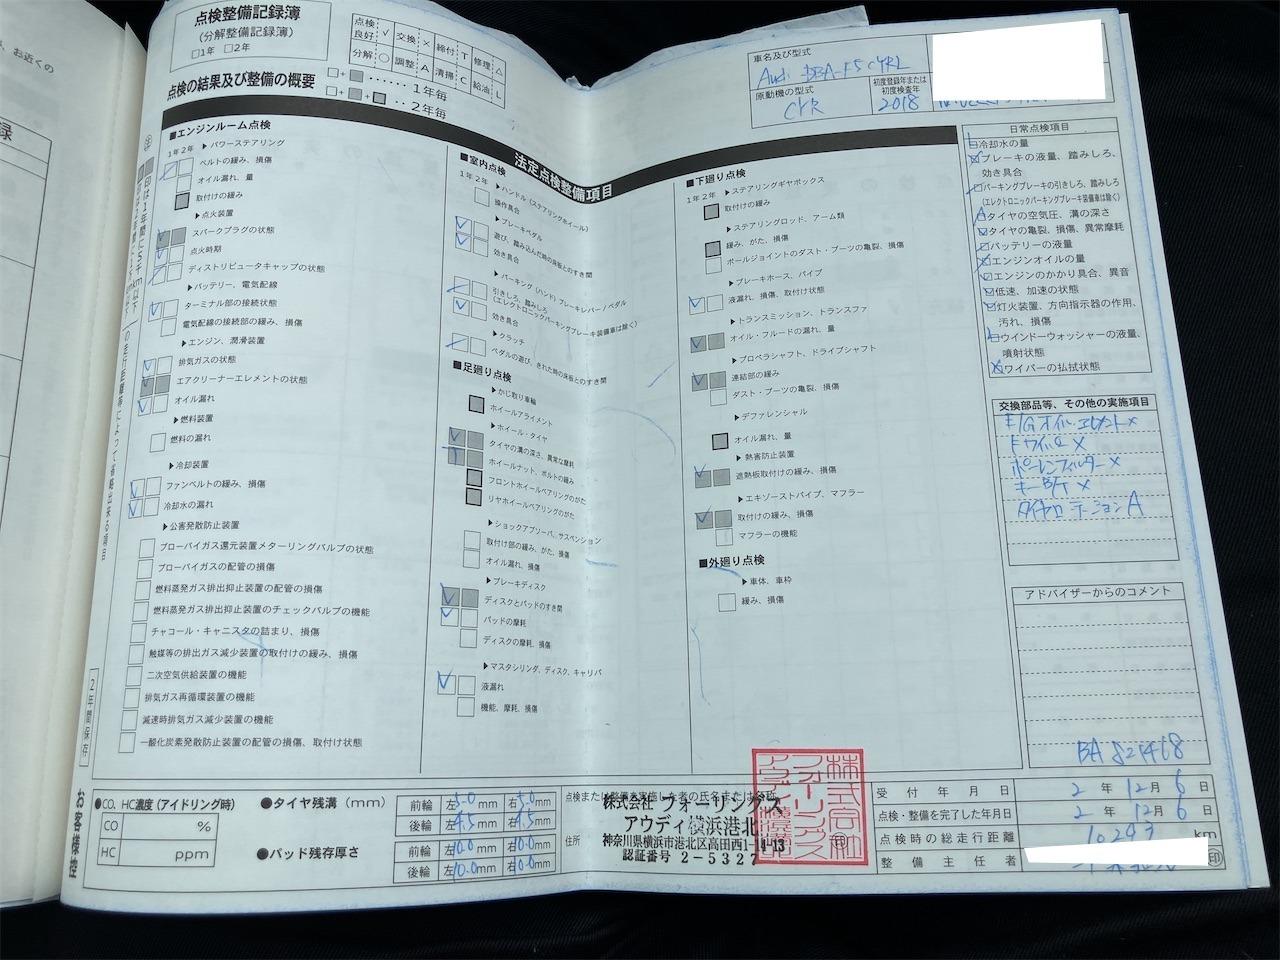 点検整備記録簿
(分解整備記録簿)
□1年 □2年
点検良好 ✓ 交換 × 締付 T 修理 △
分解 ○ 調整 A 清掃 C 給油 L
点検の結果及び整備の概要
□+■・・・・・・1年毎
□+■+■・・2年毎
車名及び型式
Audi DBA-F5CYRL
原動機の型式
CYR
初度登録年または
初度検査年
2018
法定点検整備項目
■エンジンルーム点検
1年2年
▶パワーステアリング
ベルトの緩み、損傷
オイル漏れ、量
取付けの緩み
▶点火装置
スパークプラグの状態
点火時期
ディストリビュータキャップの状態
▶バッテリー、電気配線
ターミナル部の接続状態
電気配線の接続部の緩み、損傷
▶エンジン、潤滑装置
排気ガスの状態
エアクリーナーエレメントの状態
オイル漏れ
▶燃料装置
燃料の漏れ
▶冷却装置
ファンベルトの緩み、損傷
冷却水の漏れ
▶公害発散防止装置
ブローバイガス還元装置メターリングバルブの状態
ブローバイガスの配管の損傷
燃料蒸発ガス排出抑止装置の配管の損傷
燃料蒸発ガス排出抑止装置のチェックバルブの機能
チャコール・キャニスタの詰まり、損傷
触媒等の排出ガス減少装置の取付けの緩み、損傷
二次空気供給装置の機能
排気ガス再循環装置の機能
減速時排気ガス減少装置の機能
一酸化炭素発散防止装置の配管の損傷、取付け状態
■室内点検
1年2年
▶ハンドル(ステアリングホイール)
操作具合
▶ブレーキペダル
遊び、踏み込んだ時の床板とのすき間
効き具合
▶パーキング(ハンド)ブレーキレバー/ペダル
引きしろ、踏みしろ
(エレクトロニックパーキングブレーキ装備車は除く)
効き具合
▶クラッチ
ペダルの遊び、きれた時の床板とのすき間
■足廻り点検
▶かじ取り車輪
ホイールアライメント
▶ホイール・タイヤ
タイヤの溝の深さ、異常な摩耗
ホイールナット、ボルトの緩み
フロントホイールベアリングのがた
リヤホイールベアリングのがた
▶ショックアブソーバ、サスペンション
取付け部の緩み、がた、損傷
オイル漏れ、損傷
▶ブレーキディスク
ディスクとパッドのすき間
パッドの摩耗
ディスクの摩耗、損傷
▶マスタシリンダ、ディスク、キャリパ
液漏れ
機能、摩耗、損傷
■下廻り点検
1年2年
▶ステアリングギヤボックス
取付けの緩み
▶ステアリングロッド、アーム類
緩み、がた、損傷
ボールジョイントのダスト・ブーツの亀裂、損傷
▶ブレーキホース、パイプ
液漏れ、損傷、取付け状態
▶トランスミッション、トランスファ
オイル・フルードの漏れ、量
▶プロペラシャフト、ドライブシャフト
連結部の緩み
ダスト・ブーツの亀裂、損傷
▶デファレンシャル
オイル漏れ、量
▶熱害防止装置
遮熱板取付けの緩み、損傷
▶エキゾーストパイプ、マフラー
取付けの緩み、損傷
マフラーの機能
■外廻り点検
▶車体、車枠
緩み、損傷
日常点検項目
冷却水の量
ブレーキの液量、踏みしろ、
効き具合
パーキングブレーキの引きしろ、踏みしろ
(エレクトロニックパーキングブレーキ装備車は除く)
タイヤの空気圧、溝の深さ
タイヤの亀裂、損傷、異常摩耗
バッテリーの液量
エンジンオイルの量
エンジンのかかり具合、異音
低速、加速の状態
灯火装置、方向指示器の作用、
汚れ、損傷
ウインドーウォッシャーの液量、
噴射状態
ワイパーの払拭状態
交換部品等、その他の実施項目
E/Gオイル、エレメント ×
Fワイパー ×
ポーレンフィルター ×
キーB/T ×
タイヤローテーション A
アドバイザーからのコメント
BA 821468
2年間保存
お客様控
●CO、HC濃度(アイドリング時)
CO %
HC ppm
●タイヤ残溝(mm)
前輪 左5.0mm 右5.0mm
後輪 左4.5mm 右4.5mm
●パッド残存厚さ
前輪 左10.0mm 右10.0mm
後輪 左10.0mm 右10.0mm
点検または整備を実施した者の氏名または名称
株式会社 フォーリングス
アウディ横浜港北
住所
神奈川県横浜市港北区高田西1-14-13
認証番号 2-5327
株式会社フォーリングスアウディ横浜港北
受付年月日 2年12月6日
点検・整備を完了した年月日 2年12月6日
点検時の総走行距離 10293 km
整備主任者 印